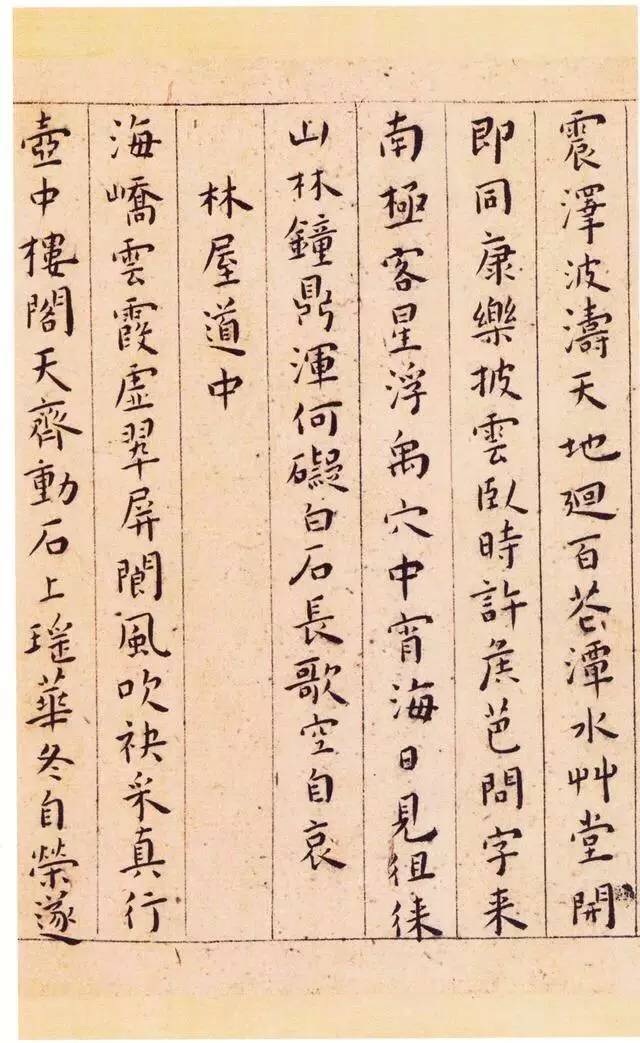 震澤波濤天地廻百花潭水艸堂開
即同康樂披雲臥時許侯芭問字来
南極客星浮禹穴中宵海日見徂徕
山林鐘鼎渾何礙白石長歌空自哀
林屋道中
海嶠雲霞虛翠屏閬風吹袂采真行
壺中樓閣天齊動石上瑤華冬自榮遂